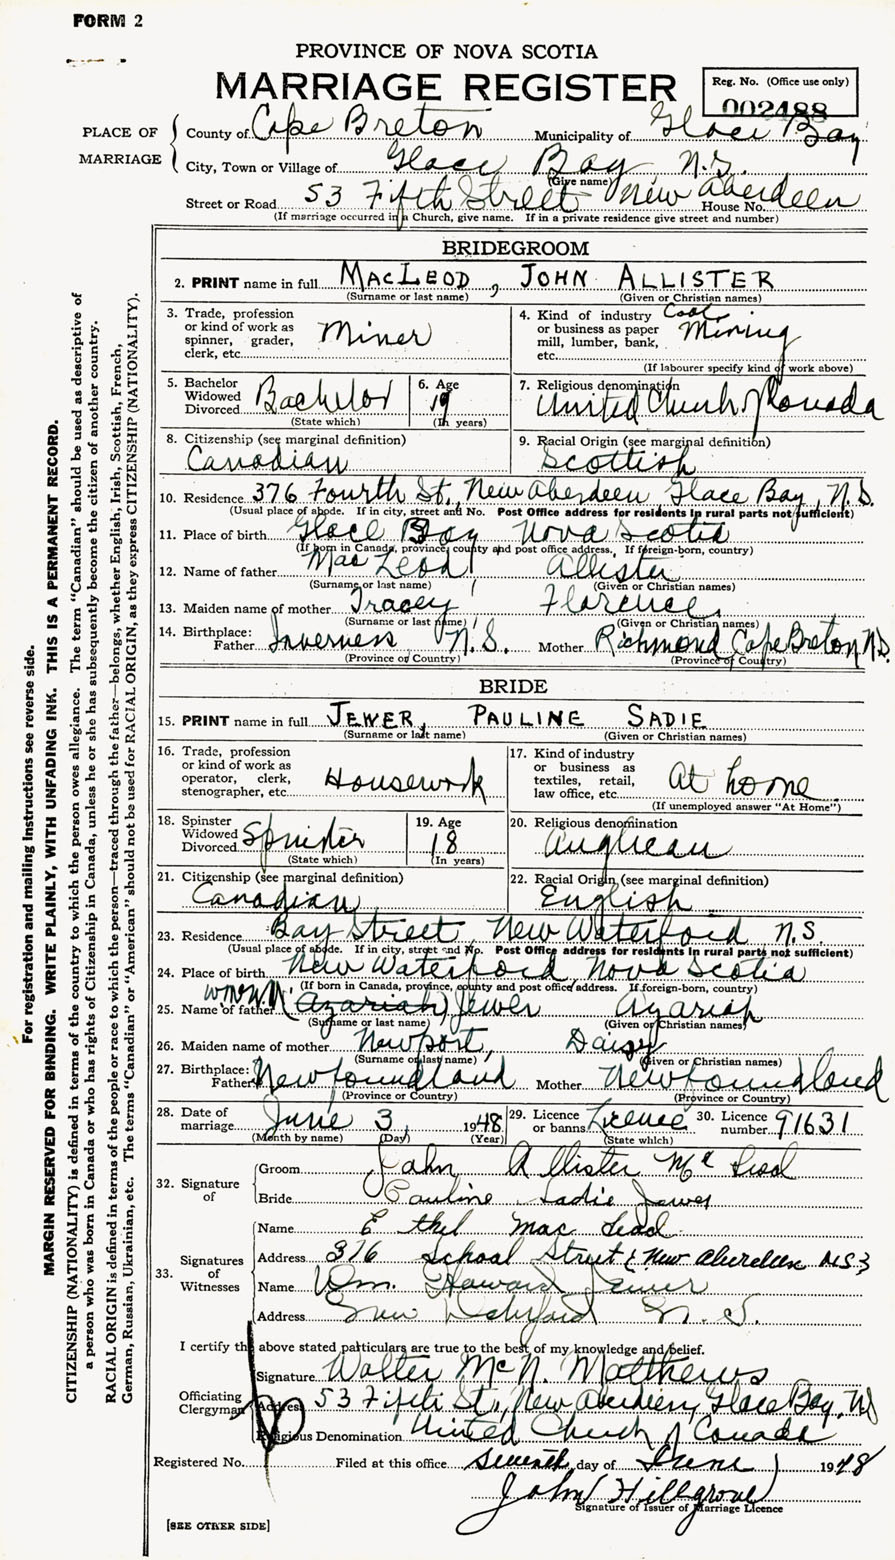 FORM 2
PROVINCE OF NOVA SCOTIA
MARRIAGE REGISTER
Reg. No. (Office use only)
002488
PLACE OF MARRIAGE
County of Cape Breton Municipality of Glace Bay
City, Town or Village of Glace Bay, N.S.
(Give name)
Street or Road 53 Fifth Street New Aberdeen House No.
(If marriage occurred in a Church, give name. If in a private residence give street and number)
BRIDEGROOM
2. PRINT name in full MACLEOD, JOHN ALLISTER
(Surname or last name) (Given or Christian names)
3. Trade, profession or kind of work as spinner, grader, clerk, etc. Miner
4. Kind of industry or business as paper mill, lumber, bank, etc. Coal Mining
(If labourer specify kind of work above)
5. Bachelor Widowed Divorced Bachelor
(State which)
6. Age 19
(In years)
7. Religious denomination
United Church of Canada
8. Citizenship (see marginal definition)
Canadian
9. Racial Origin (see marginal definition)
Scottish
10. Residence 376 Fourth St., New Aberdeen, Glace Bay, N.S.
(Usual place of abode. If in city, street and No. Post Office address for residents in rural parts not sufficient)
11. Place of birth Glace Bay Nova Scotia
(If born in Canada, province, county and post office address. If foreign-born, country)
12. Name of father MacLeod, Allister
(Surname or last name) (Given or Christian names)
13. Maiden name of mother Tracey, Florence
(Surname or last name) (Given or Christian names)
14. Birthplace: Father Inverness N.S. Mother Richmond Cape Breton N.S.
(Province or Country) (Province or Country)
BRIDE
15. PRINT name in full JEWER, PAULINE SADIE
(Surname or last name) (Given or Christian names)
16. Trade, profession or kind of work as operator, clerk, stenographer, etc. Housework
17. Kind of industry or business as textiles, retail, law office, etc. At home
(If unemployed answer "At Home")
18. Spinster Widowed Divorced Spinster
(State which)
19. Age 18
(In years)
20. Religious denomination
Anglican
21. Citizenship (see marginal definition)
Canadian
22. Racial Origin (see marginal definition)
English
23. Residence Bay Street New Waterford N.S.
(Usual place of abode. If in city, street and No. Post Office address for residents in rural parts not sufficient)
24. Place of birth New Waterford Nova Scotia
(If born in Canada, province, county and post office address. If foreign-born, country)
25. Name of father (Azariah) Jewer Azariah
(Surname or last name) (Given or Christian names)
26. Maiden name of mother Newport, Daisy
(Surname or last name) (Given or Christian names)
27. Birthplace: Father Newfoundland Mother Newfoundland
(Province or Country) (Province or Country)
28. Date of marriage June 3 1948
(Month by name) (Day) (Year)
29. Licence or banns Licence
(State which)
30. Licence number 91631
32. Signature of
Groom John Allister McLeod
Bride Pauline Sadie Jewer
33. Signatures of Witnesses
Name Ethel MacLeod
Address 376 School Street New Aberdeen N.S.
Name Wm. Howard Jewer
Address New Waterford N.S.
I certify the above stated particulars are true to the best of my knowledge and belief.
Officiating Clergyman
Signature Walter McN. Matthews
Address 53 Fifth St., New Aberdeen, Glace Bay, NS
Religious Denomination United Church of Canada
Registered No. Filed at this office seventh day of June 1948
John Hillgrove
Signature of Issuer of Marriage Licence
[SEE OTHER SIDE]
For registration and mailing instructions see reverse side.
MARGIN RESERVED FOR BINDING. WRITE PLAINLY, WITH UNFADING INK. THIS IS A PERMANENT RECORD.
CITIZENSHIP (NATIONALITY) is defined in terms of the country to which the person owes allegiance. The term "Canadian" should be used as descriptive of
a person who was born in Canada or who has rights of Citizenship in Canada, unless he or she has subsequently become the citizen of another country.
RACIAL ORIGIN is defined in terms of the people or race to which the person—traced through the father—belongs, whether English, Irish, Scottish, French,
German, Russian, Ukrainian, etc. The terms "Canadian" or "American" should not be used for RACIAL ORIGIN, as they express CITIZENSHIP (NATIONALITY).